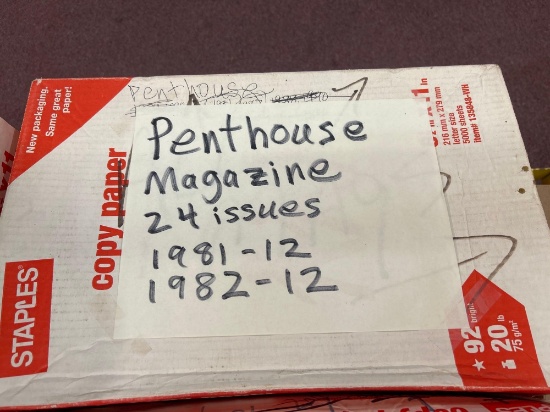 New packaging.
Same great
paper!
penthouse
Penthouse
Magazine
24 issues
1981-12
1982-12
copy paper
STAPLES
11 in
216 mm x 279 mm
letter size
5000 sheets
Item# 135848-WH
92 bright
20 lb
75 g/m²